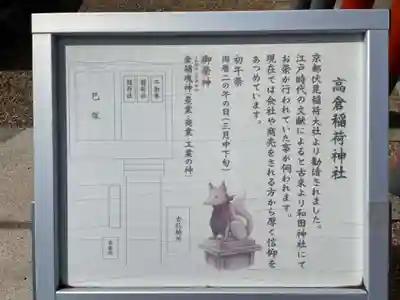 高倉稲荷神社
京都伏見稲荷大社より勧請されました。
江戸時代の文献によると古来より和田神社にて
お祭が行われていた事が伺われます。
現在では会社や商売をされる方から厚く信仰を
あつめています。
初午祭
旧暦二の午の日(三月中下旬)
御祭神
倉稲魂神(農業・商業・工業の神)
稲荷社
巳塚
古札納所